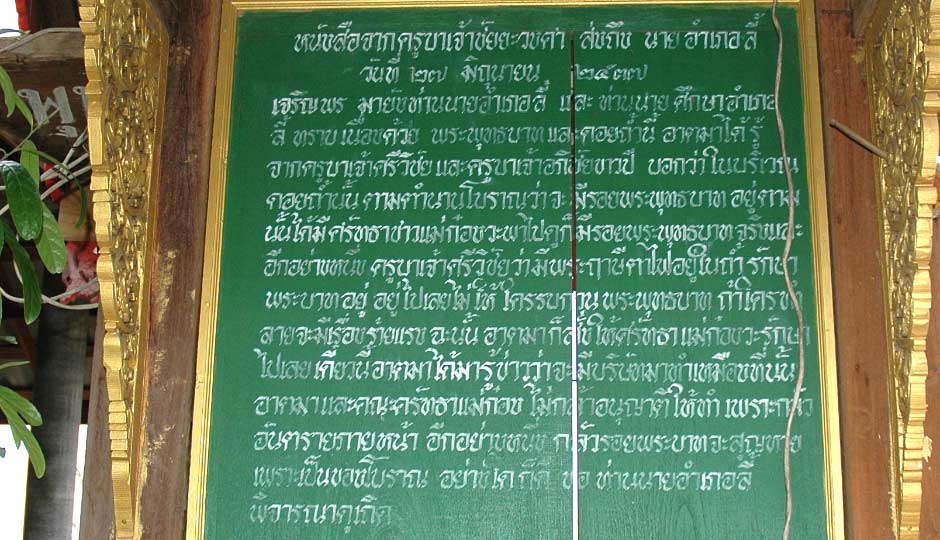 หนังสือจากครูบาเจ้าชัยยะวงศา ส่งถึง นายอำเภอลี้
วันที่ ๒๗ มิถุนายน ๒๕๓๗
เจริญพร มายังท่านนายอำเภอลี้ และ ท่านนาย ศึกษาอำเภอ
ลี้ ทราบเนื่องด้วย พระพุทธบาท และดอยถ้ำนี้ อาตมาได้ รู้
จากครูบาเจ้าศรีวิชัย และครูบาเจ้าอภิชัยขาวปี บอกว่าในบริเวณ
ดอยถ้ำนั้น ตามตำนานโบราณว่าจะ มีรอยพระพุทธบาท อยู่ตาม
นั้นได้มี ศรัทธาชาวแม่ก๋องวะพาไปดูก็มีรอยพระพุทธบาท จริงและ
อีกอย่างหนึ่ง ครูบาเจ้าศรีวิชัยว่ามีพระฤาษีตาไฟอยู่ในถ้ำ รักษา
พระบาท อยู่ อยู่ไปเลยไม่ให้ ใครรบกวน พระพุทธบาท ถ้าใครทำ
ลายจะมีเรื่องร้ายแรง ฉะนั้น อาตมาก็สั่งให้ศรัทธาแม่ก๋องวะรักษา
ไปเลย เดี๋ยวนี้อาตมาได้มารู้ข่าวว่าจะมีบริษัทมาทำเหมืองที่นั้น
อาตมาและคณะศรัทธาแม่ก๋อง ไม่กล้าอนุญาติให้ทำ เพราะกลัว
อันตรายภายหน้า อีกอย่างหนึ่ง กลัวรอยพระบาทจะสูญหาย
เพราะเป็นของโบราณ อย่างใด ก็ดี ขอ ท่านนายอำเภอลี้
พิจารณาดูเถิด